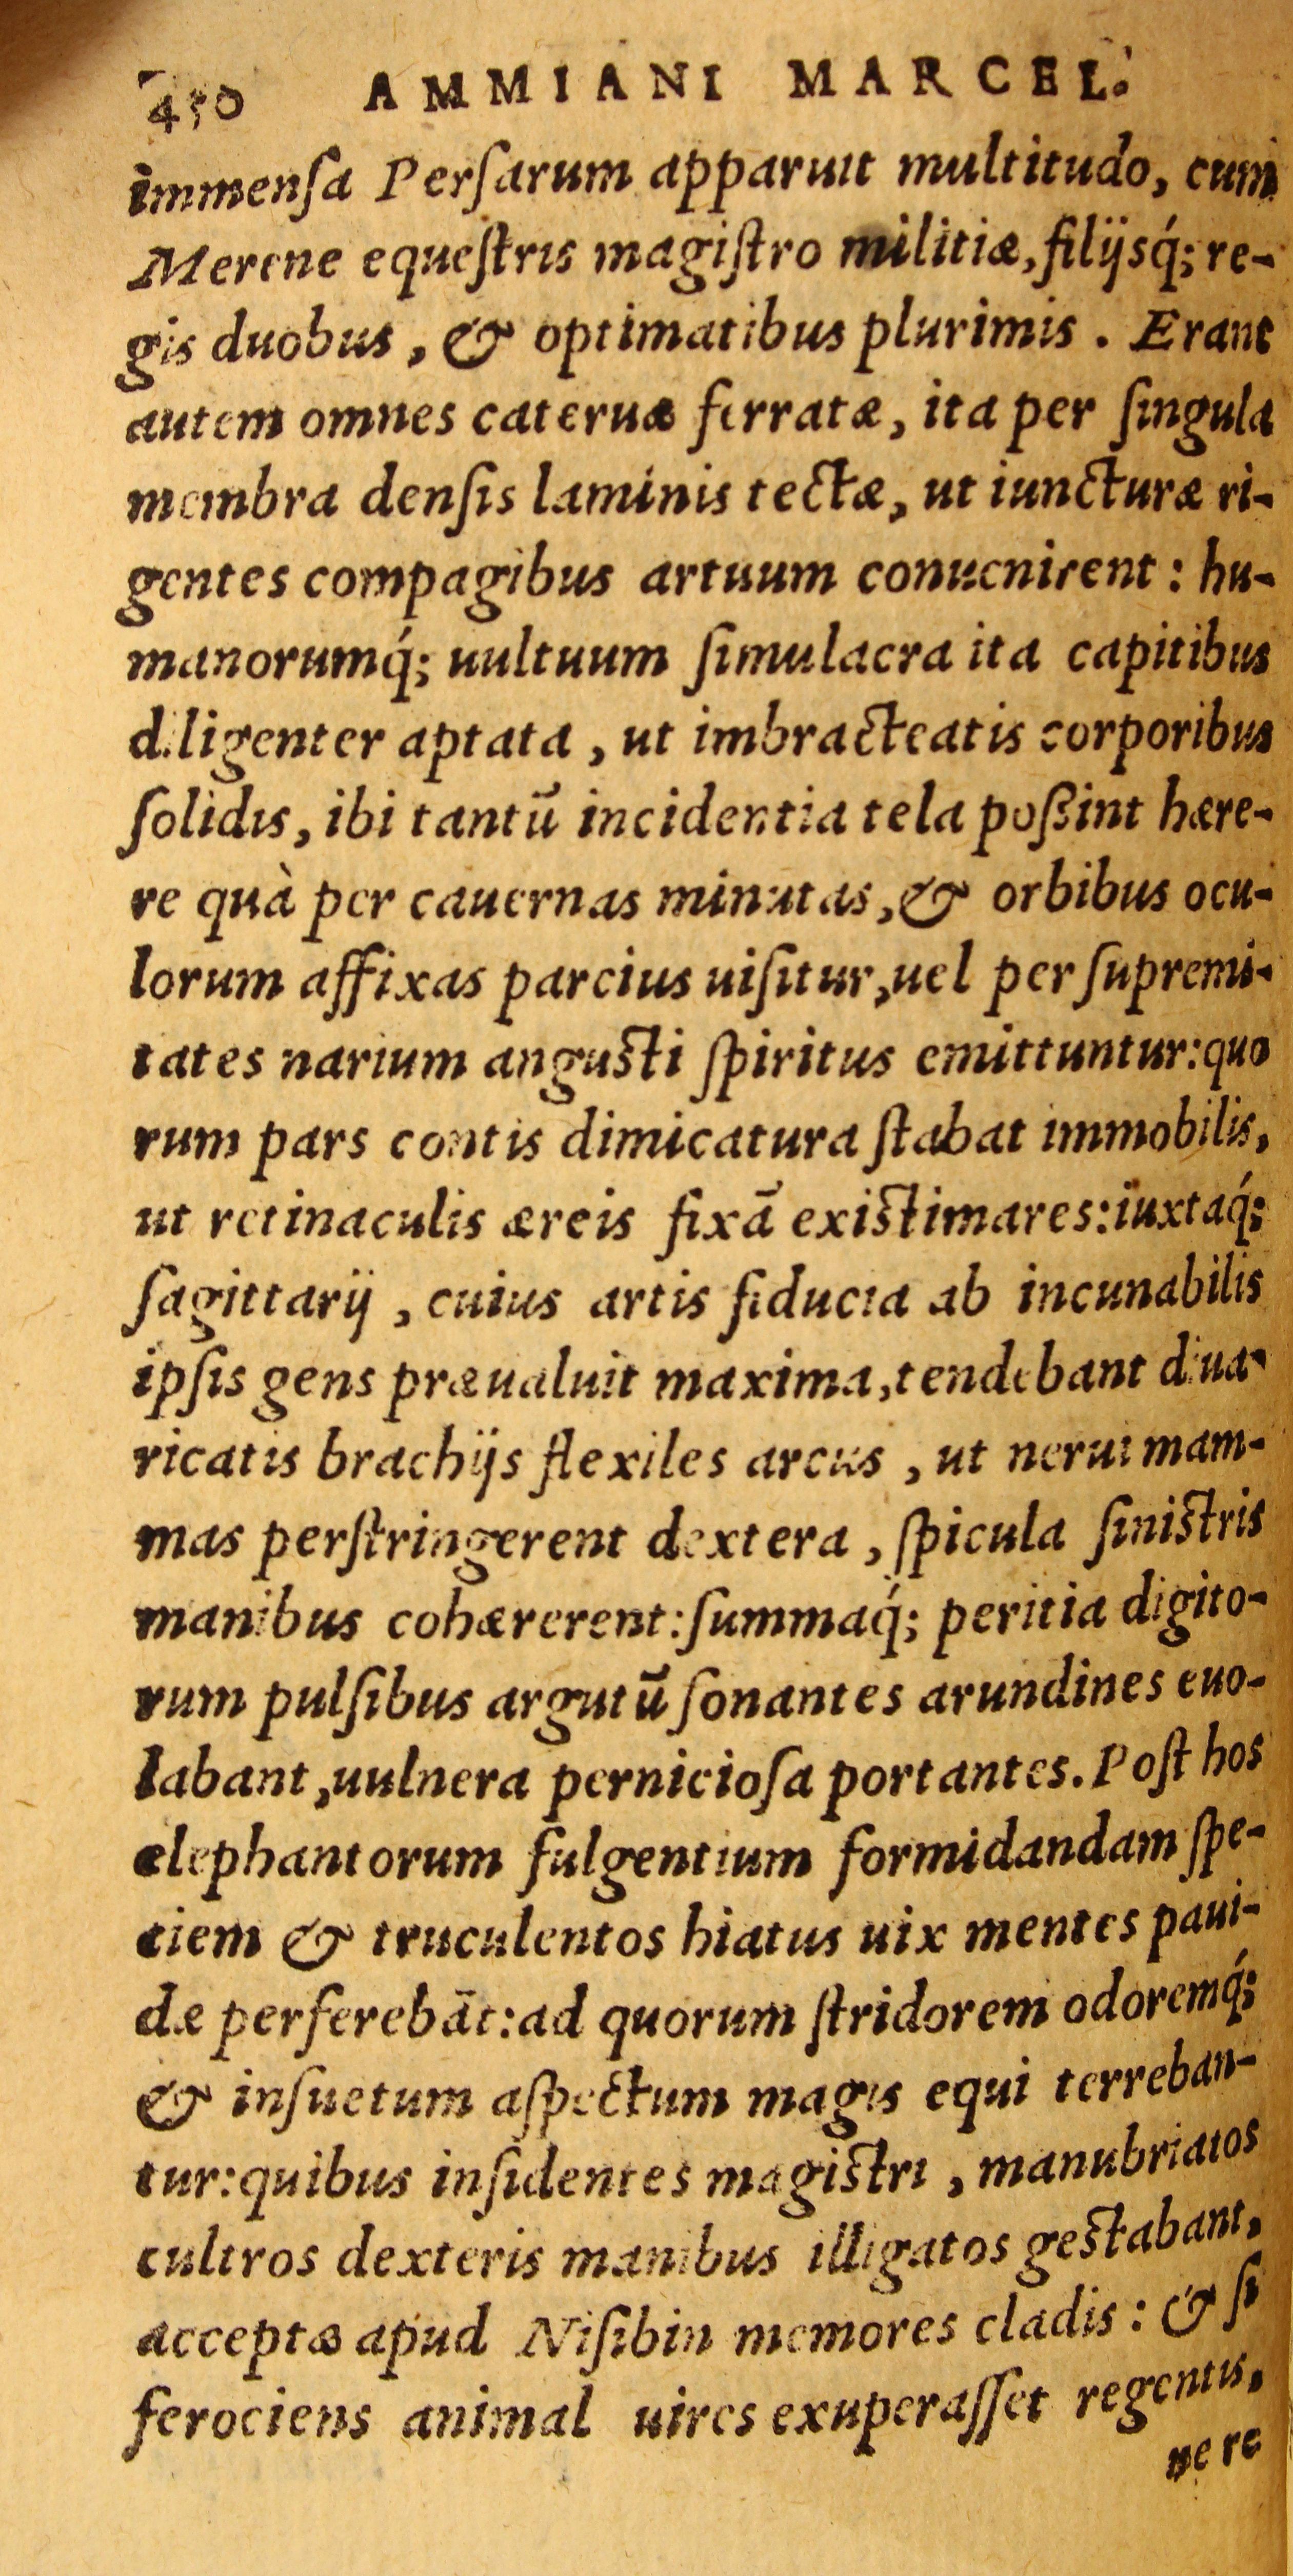 450 AMMIANI MARCEL.
immenſa Perſarum apparuit multitudo, cum
Merene equeſtris magiſtro militiæ, filijsq́; re-
gis duobus, & optimatibus plurimis. Erant
autem omnes cateruæ ferratæ, ita per ſingula
membra denſis laminis tectæ, ut iuncturæ ri-
gentes compagibus artuum conuenirent: hu-
manorumq́; uultuum ſimulacra ita capitibus
diligenter aptata, ut imbracteatis corporibus
ſolidis, ibi tantū incidentia tela poßint hære-
re quà per cauernas minutas, & orbibus ocu-
lorum affixas parcius uiſitur, uel per ſupremi-
tates narium anguſti ſpiritus emittuntur: quo
rum pars contis dimicatura ſtabat immobilis,
ut retinaculis æreis fixā exiſtimares: iuxtaq́;
ſagittarij, cuius artis fiducia ab incunabilis
ipſis gens præualuit maxima, tendebant diua-
ricatis brachijs flexiles arcus, ut nerui mam-
mas perſtringerent dextera, ſpicula ſiniſtris
manibus cohærerent: ſummaq́; peritia digito-
rum pulſibus argutū ſonantes arundines euo-
labant, uulnera pernicioſa portantes. Poſt hos
elephantorum fulgentium formidandam ſpe-
ciem & truculentos hiatus uix mentes paui-
dæ perferebāt: ad quorum ſtridorem odoremq́;
& inſuetum aſpectum magis equi terreban-
tur: quibus inſidentes magiſtri, manubriatos
cultros dexteris manibus illigatos geſtabant,
acceptæ apud Niſibin memores cladis: & ſi
ferociens animal uires exuperaſſet regentis,
ne re